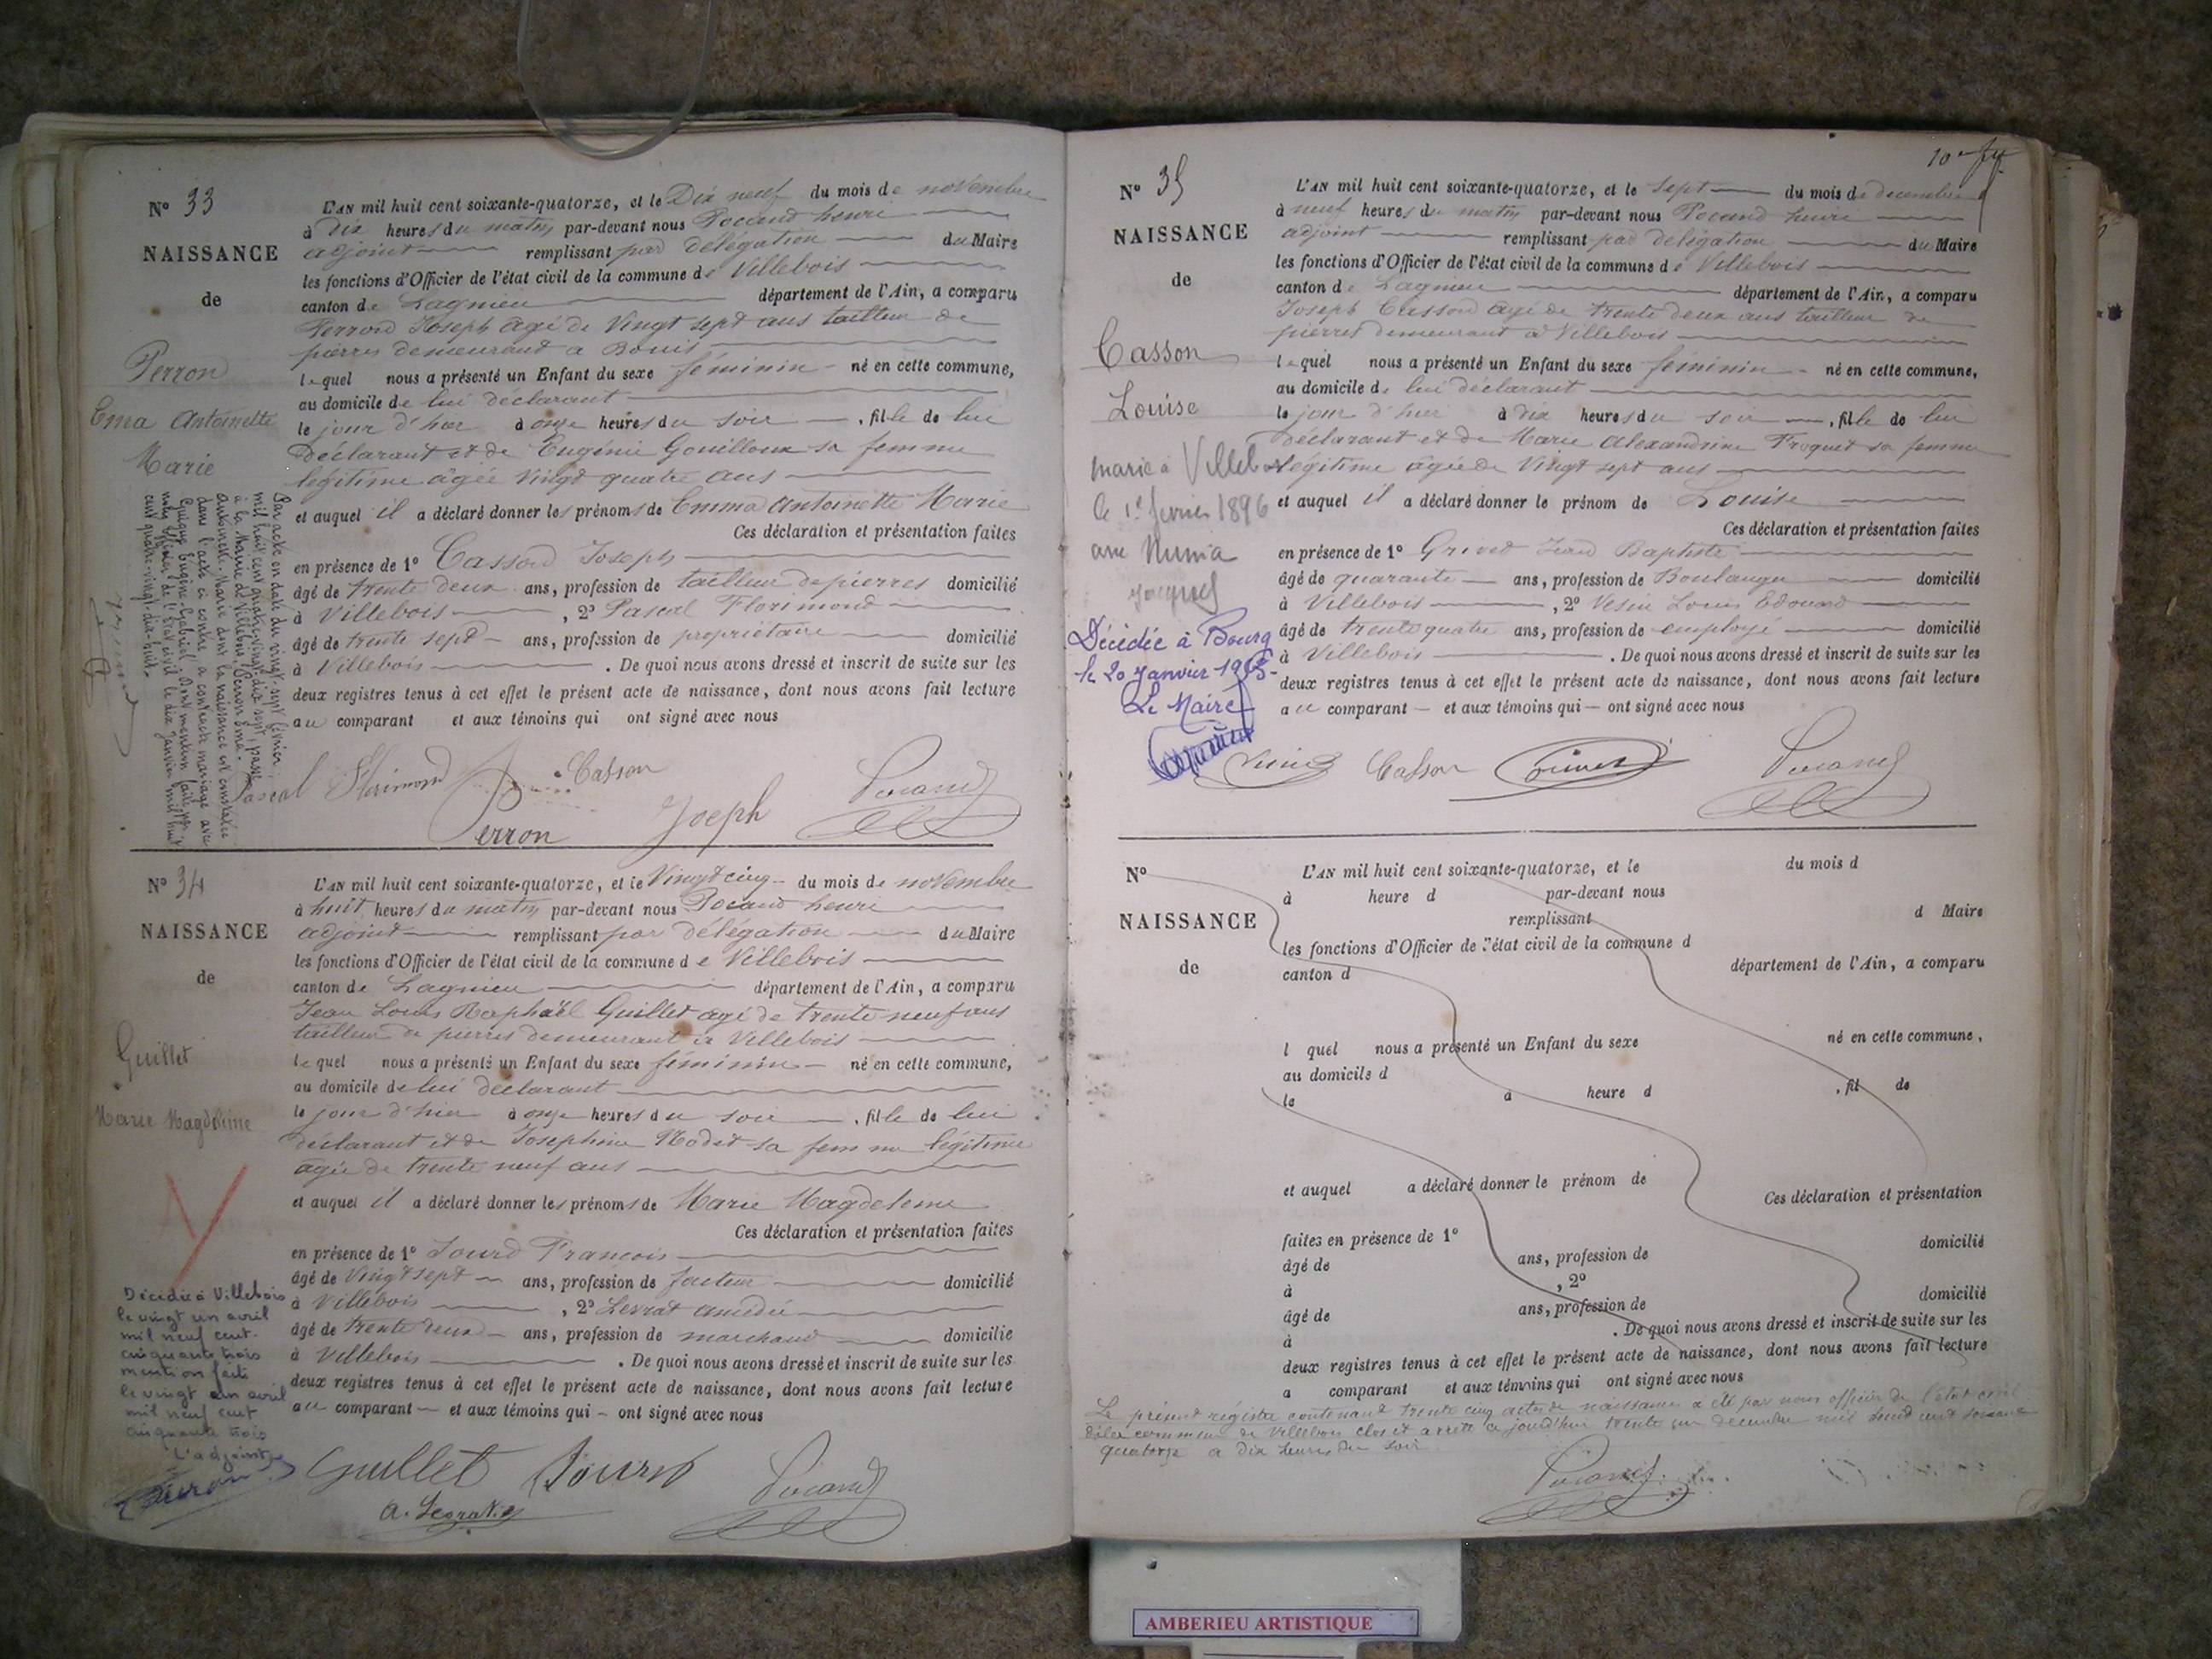 N° 33
NAISSANCE
de
Perron
Ema Antoinette
Marie
L'AN mil huit cent soixante-quatorze, et le Dix neuf du mois de novembre
à Dix heures du matin par-devant nous Pocand henri
adjoint remplissant par délégation du Maire
les fonctions d'Officier de l'état civil de la commune de Villebois
canton de Lagnieu département de l'Ain, a comparu
Perron Joseph âgé de Vingt sept ans tailleur de
pierres demeurant a Bouis
lequel nous a présenté un Enfant du sexe féminin né en cette commune,
au domicile de lui déclarant
le jour d'hier à onze heures du soir , fille de lui
Déclarant et de Eugénie Gouilloux sa femme
légitime âgée Vingt quatre ans
et auquel il a déclaré donner les prénoms de Emma Antoinette Marie
Ces déclaration et présentation faites
en présence de 1° Casson Joseph
âgé de trente deux ans, profession de tailleur de pierres domicilié
à Villebois , 2° Pascal Florimond
âgé de trente sept ans, profession de propriétaire domicilié
à Villebois . De quoi nous avons dressé et inscrit de suite sur les
deux registres tenus à cet effet le présent acte de naissance, dont nous avons fait lecture
au comparant et aux témoins qui ont signé avec nous
Par acte en date du vingt-sept février
mil huit cent quatre-vingt-dix-sept, passé
à la Mairie de Villebois, Perron Ema-
Antoinette-Marie dont la naissance est constatée
dans l'acte ci contre a contracté mariage avec
Guigue Eugène Gabriel. Dont mention faite par
nous officier de l'état civil le dix janvier mil huit
cent quatre-vingt-dix-huit.
Pascal Florimond Casson
Perron Joseph Pocand
N° 34
NAISSANCE
de
Guillet
Marie Magdeleine
L'AN mil huit cent soixante-quatorze, et le Vingt cinq du mois de novembre
à huit heures du matin par-devant nous Pocand henri
adjoint remplissant par délégation du Maire
les fonctions d'Officier de l'état civil de la commune de Villebois
canton de Lagnieu département de l'Ain, a comparu
Jean Louis Raphaël Guillet âgé de trente neuf ans
tailleur de pierres demeurant à Villebois
lequel nous a présenté un Enfant du sexe féminin né en cette commune,
au domicile de lui déclarant
le jour d'hier à onze heures du soir , fille de lui
déclarant et de Josephine Rodet sa femme légitime
agée de trente neuf ans
et auquel il a déclaré donner les prénoms de Marie Magdeleine
Ces déclaration et présentation faites
en présence de 1° Jourd François
âgé de Vingt sept ans, profession de facteur domicilié
à Villebois , 2° Serrat amédée
âgé de trente deux ans, profession de marchand domicilié
à Villebois . De quoi nous avons dressé et inscrit de suite sur les
deux registres tenus à cet effet le présent acte de naissance, dont nous avons fait lecture
au comparant et aux témoins qui ont signé avec nous
Décédée à Villebois
le vingt un avril
mil neuf cent
cinquante trois
mention faite
le vingt un avril
mil neuf cent
cinquante trois
L'adjoint
Guillet Jourd Pocand
10e
N° 35
NAISSANCE
de
Casson
Louise
marié à Villebois
le 1er février 1896
avec Numa
Jacquet
Décédée à Bourg
le 20 Janvier
Le Maire
L'AN mil huit cent soixante-quatorze, et le sept du mois de decembre
à neuf heures du matin par-devant nous Pocand henri
adjoint remplissant par délégation du Maire
les fonctions d'Officier de l'état civil de la commune de Villebois
canton de Lagnieu département de l'Ain, a comparu
Joseph Casson âgé de trente deux ans tailleur de
pierres demeurant à Villebois
lequel nous a présenté un Enfant du sexe féminin né en cette commune,
au domicile de lui déclarant
le jour d'hier à dix heures du soir , fille de lui
déclarant et de Marie Alexandrine Froquet sa femme
légitime âgée de Vingt sept ans
et auquel il a déclaré donner le prénom de Louise
Ces déclaration et présentation faites
en présence de 1° Grinet Jean Baptiste
âgé de quarante ans, profession de Boulanger domicilié
à Villebois , 2° Vesin Louis Edouard
âgé de trente quatre ans, profession de employé domicilié
à Villebois . De quoi nous avons dressé et inscrit de suite sur les
deux registres tenus à cet effet le présent acte de naissance, dont nous avons fait lecture
au comparant et aux témoins qui ont signé avec nous
Casson Pocand
N°
NAISSANCE
de
L'AN mil huit cent soixante-quatorze, et le du mois d
à heure d par-devant nous
remplissant d Maire
les fonctions d'Officier de l'état civil de la commune d
canton d département de l'Ain, a comparu
l quel nous a présenté un Enfant du sexe né en cette commune,
au domicile d
le à heure d , fil de
et auquel a déclaré donner le prénom de
Ces déclaration et présentation
faites en présence de 1°
âgé de ans, profession de domicilié
à , 2°
âgé de ans, profession de domicilié
à . De quoi nous avons dressé et inscrit de suite sur les
deux registres tenus à cet effet le présent acte de naissance, dont nous avons fait lecture
a comparant et aux témoins qui ont signé avec nous
Le présent régistre contenant trente cinq actes de naissances a été par nous officier de l'état civil
de la commune de Villebois clos et arrêté ce jourd'hui trente un decembre mil huit cent soixante
quatorze à dix heures du soir
Pocand
AMBERIEU ARTISTIQUE